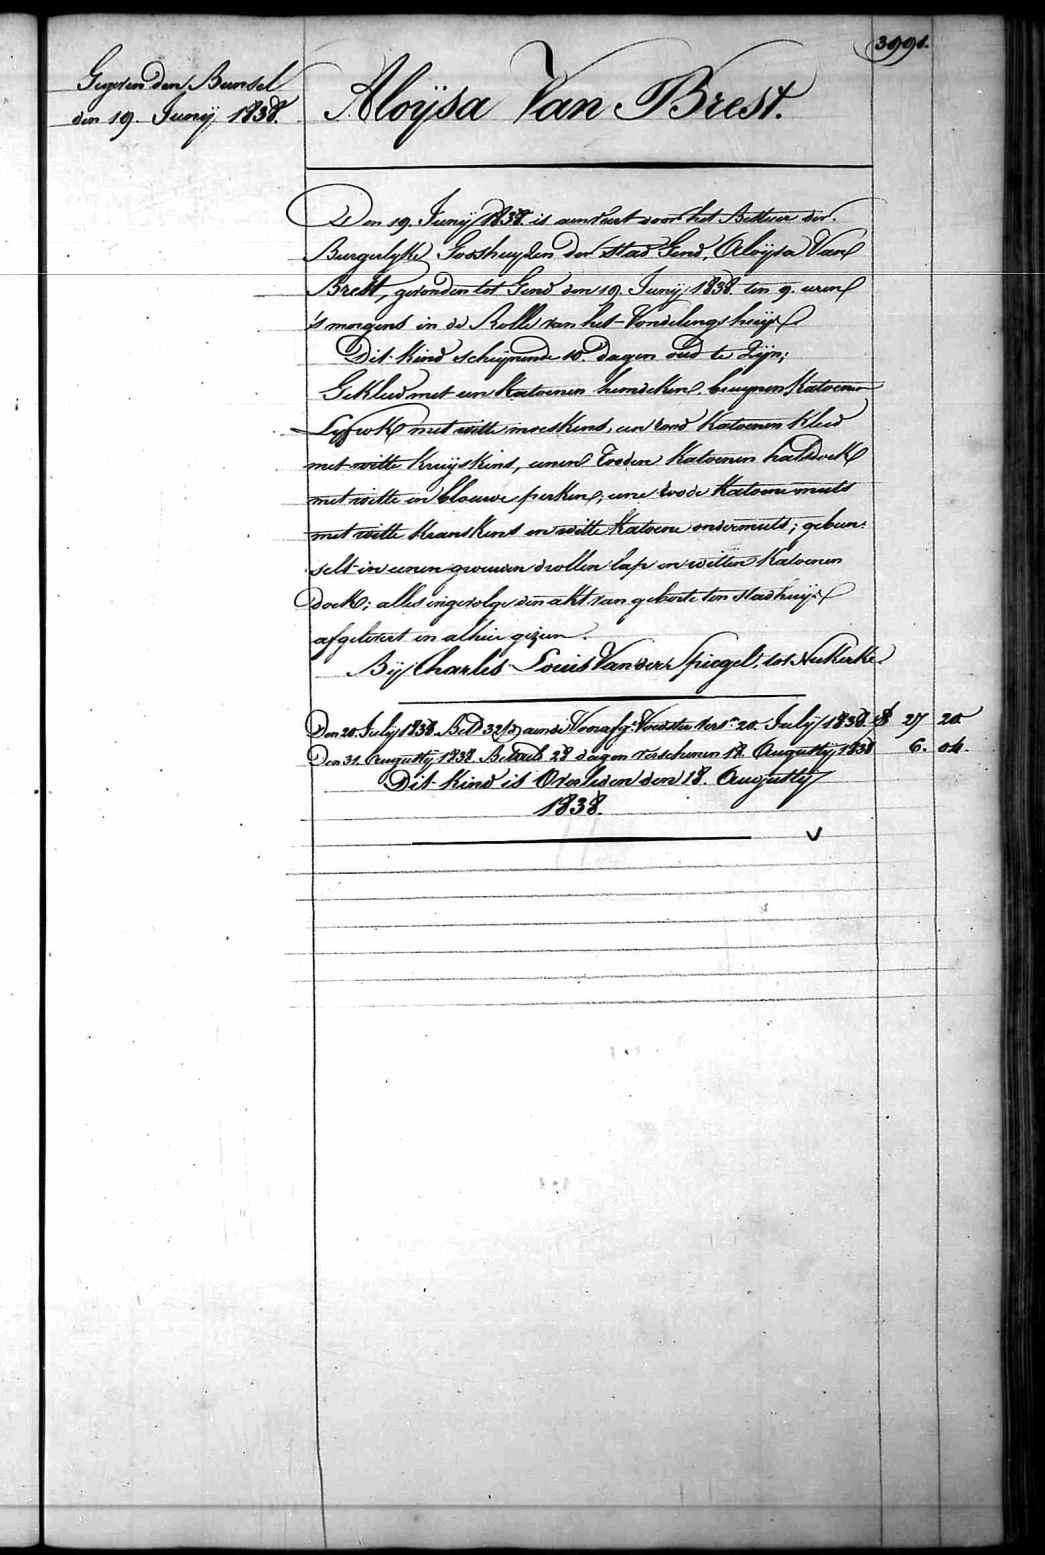 3991.
Gegeven den Bunsel
den 19. Junij 1838.
Aloÿsa Van Brest.
Den 19. Junij 1838 is aenveert door het Bestuer der
Burgerlyke Godshuyzen der stad Gend, Aloÿsa Van
Brest, gevonden tot Gend den 19 Junij 1838 ten 9. uren
's morgens in de Rolle van het Vondelingshuijs
Dit kind schijnende 10. dagen oud te Zijn;
Gekleed met een Katoenen hemdeken, bruynen Katoenen
Lyfrok met witte moeskens, een rood Katoenen Kleed
met witte kruijskens, eenen rooden Katoenen halsdoek
met witte en blouwe perken; eene roode Katoene muts
met witte kranskens en witte Katoene ondermuts; gebun-
selt in eenen grouwen wollen lap en witten Katoenen
doek; alles ingevolge den akt van geboorte ten stadhuijs
afgelevert en alhier gezien.
Bij Charles Louis Van der Spiegel, tot Nukerke
Den 20. July 1838. Bet 32 aen de Voorafg. Voedster vers. 20. July 1838 27 20
Den 31. Augusty 1838 Betaelt 28 dagen verschenen 18 Augusty 1838 6. 04.
Dit kind is Overleden den 18. Augusty
1838.